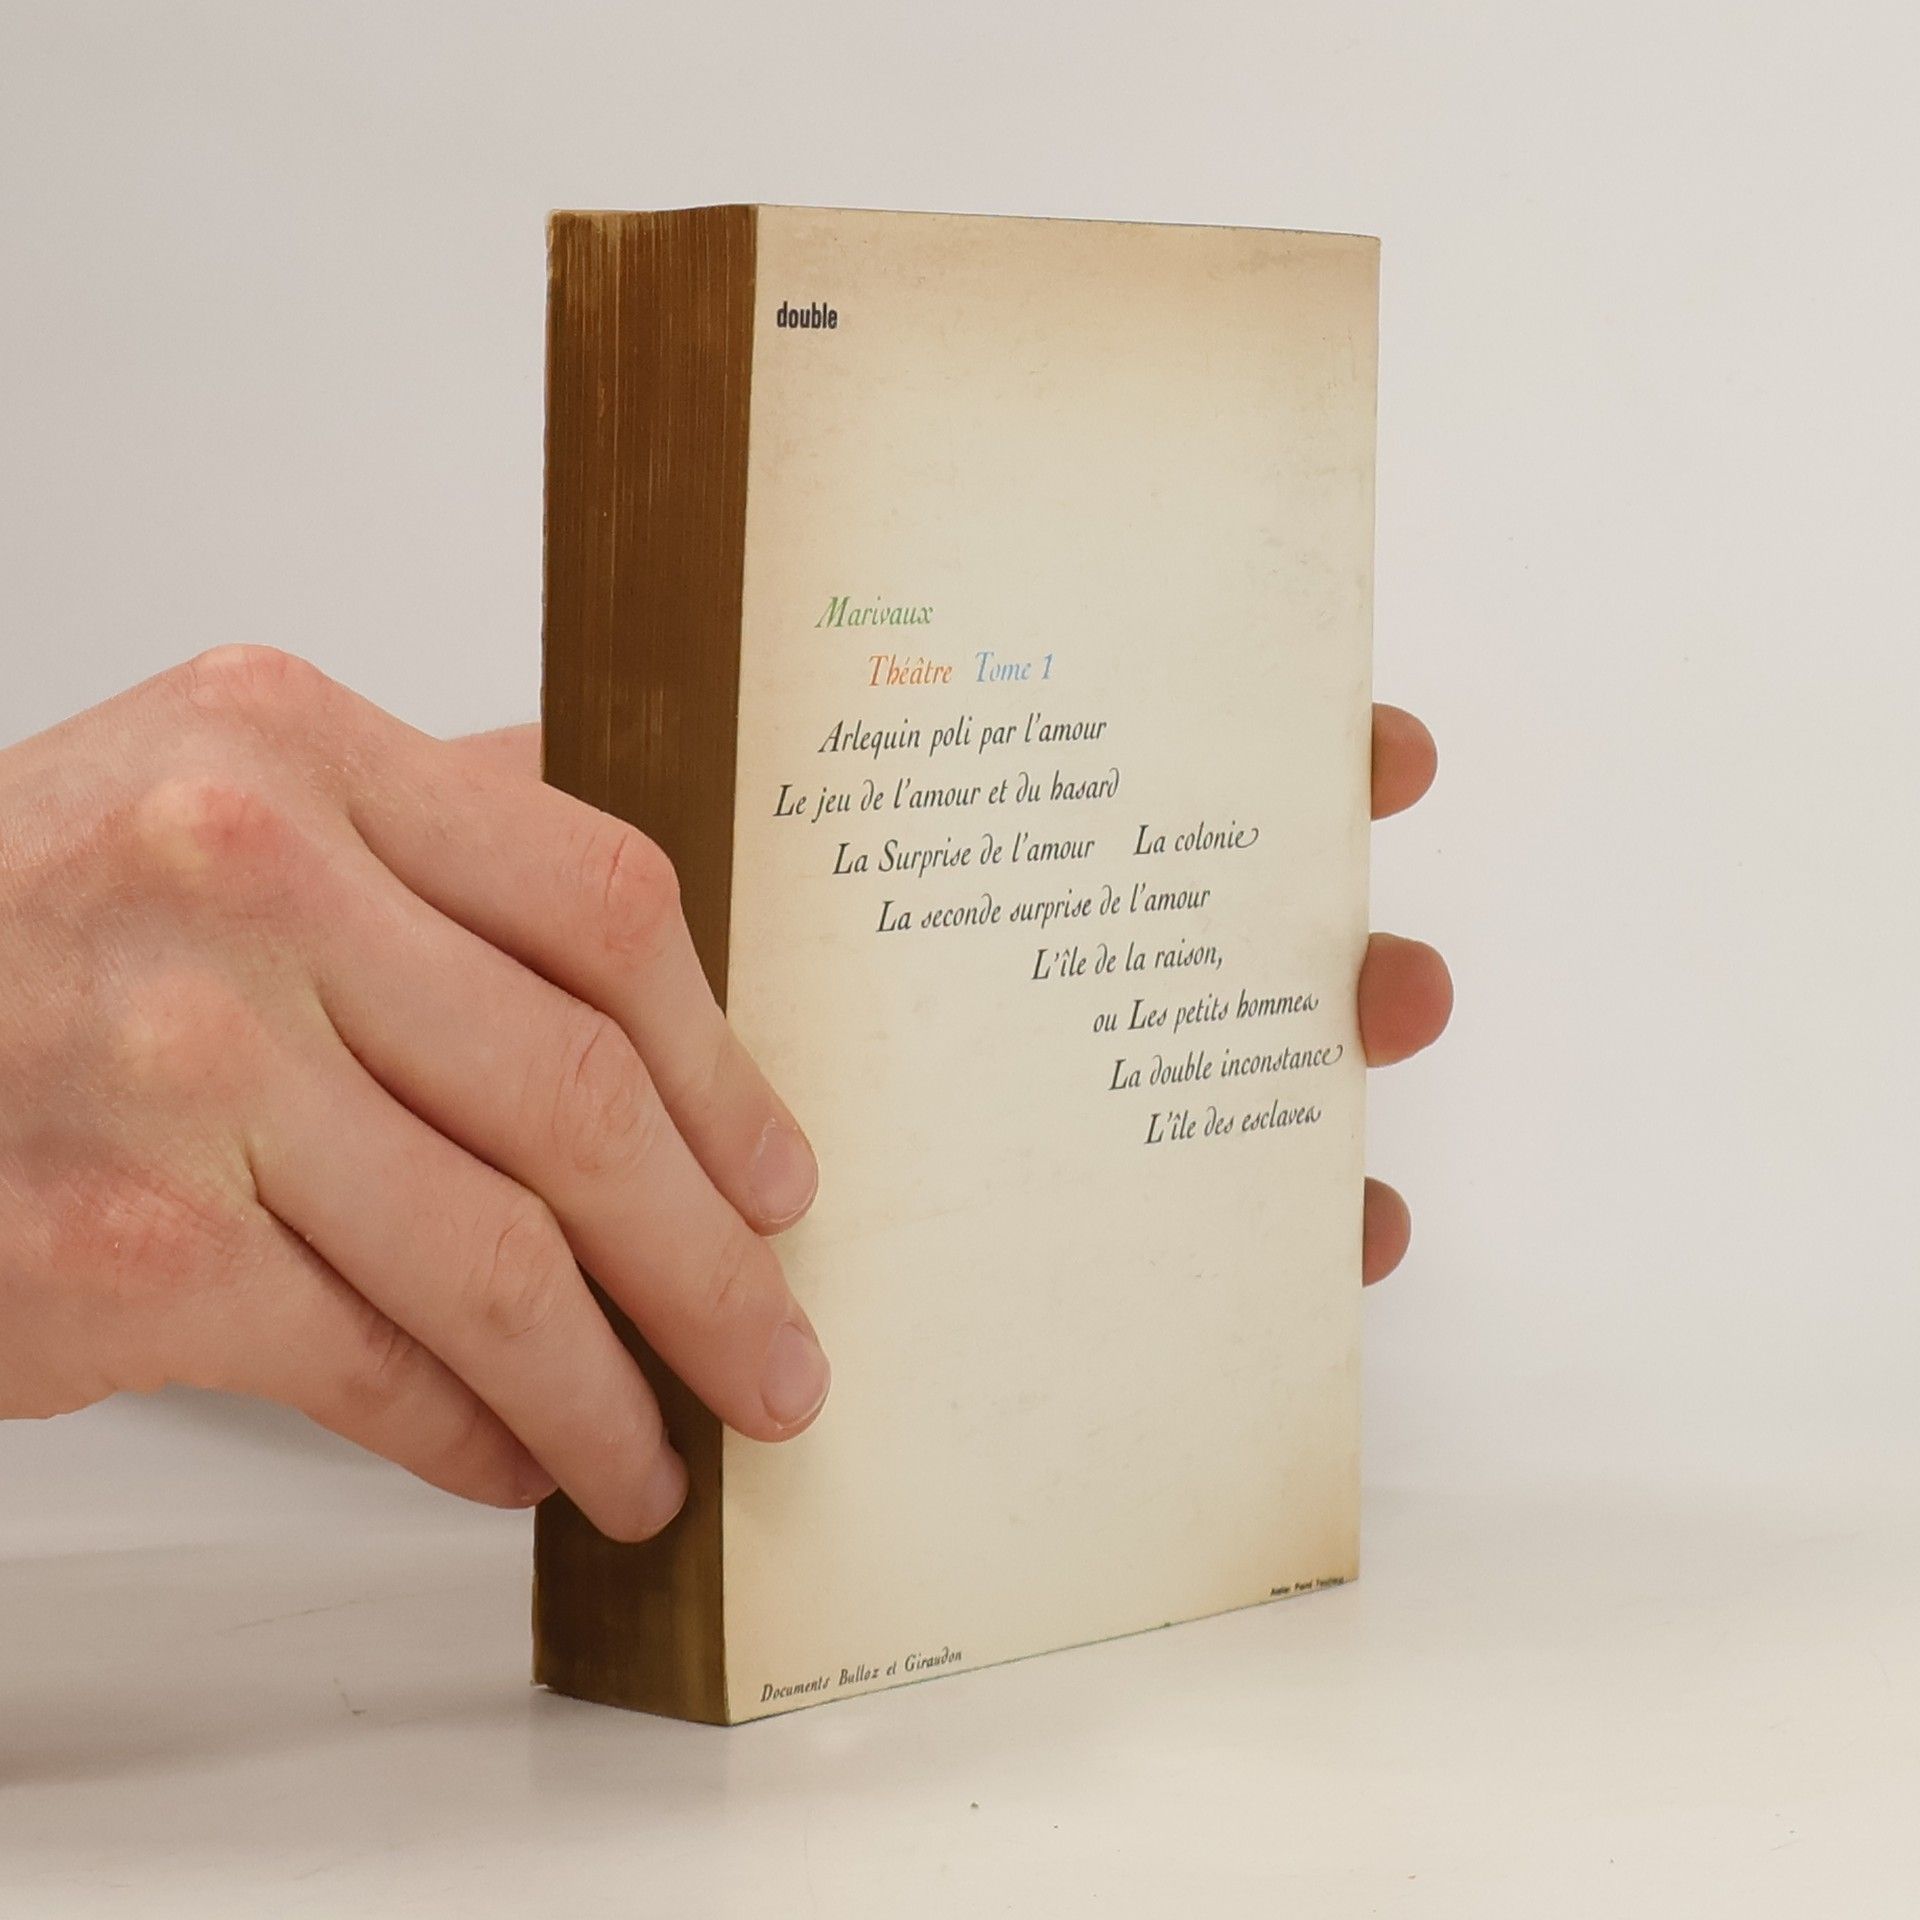 double
Marivaux
Théâtre Tome 1
Arlequin poli par l'amour
Le jeu de l'amour et du hasard
La Surprise de l'amour La colonie
La seconde surprise de l'amour
L'île de la raison,
ou Les petits hommes
La double inconstance
L'île des esclaves
Atelier
Documents Bulloz et Giraudon